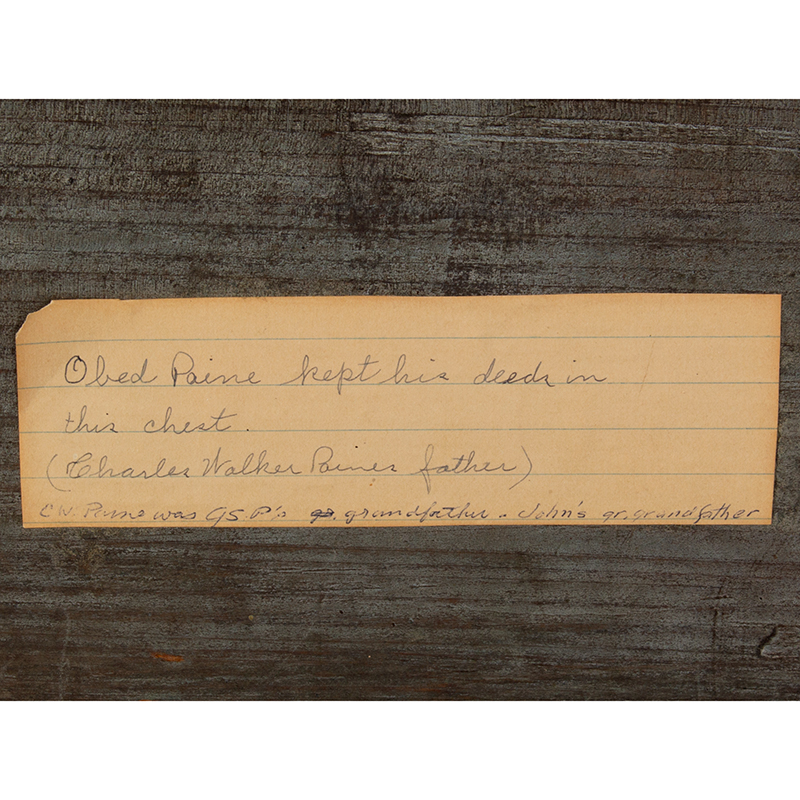 Obed Paine kept his deeds in
this chest.
(Charles Walker Paines father)
C W. Paine was G.S.P's grandfather - John's gr. grandfather